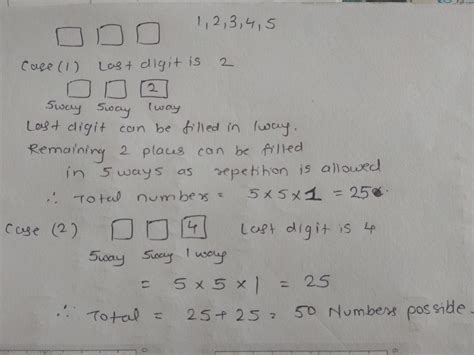 1, 2, 3, 4, 5
Case (1) Last digit is 2
2
5way 5way 1way
Last digit can be filled in 1way.
Remaining 2 places can be filled
in 5 ways as repetition is allowed
∴ Total numbers = 5 × 5 × 1 = 25
Case (2) 4 Last digit is 4
5way 5way 1way
= 5 × 5 × 1 = 25
∴ Total = 25 + 25 = 50 Numbers possible.